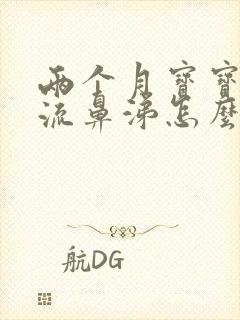 两个月寳寳
流鼻涕怎麽
航DG